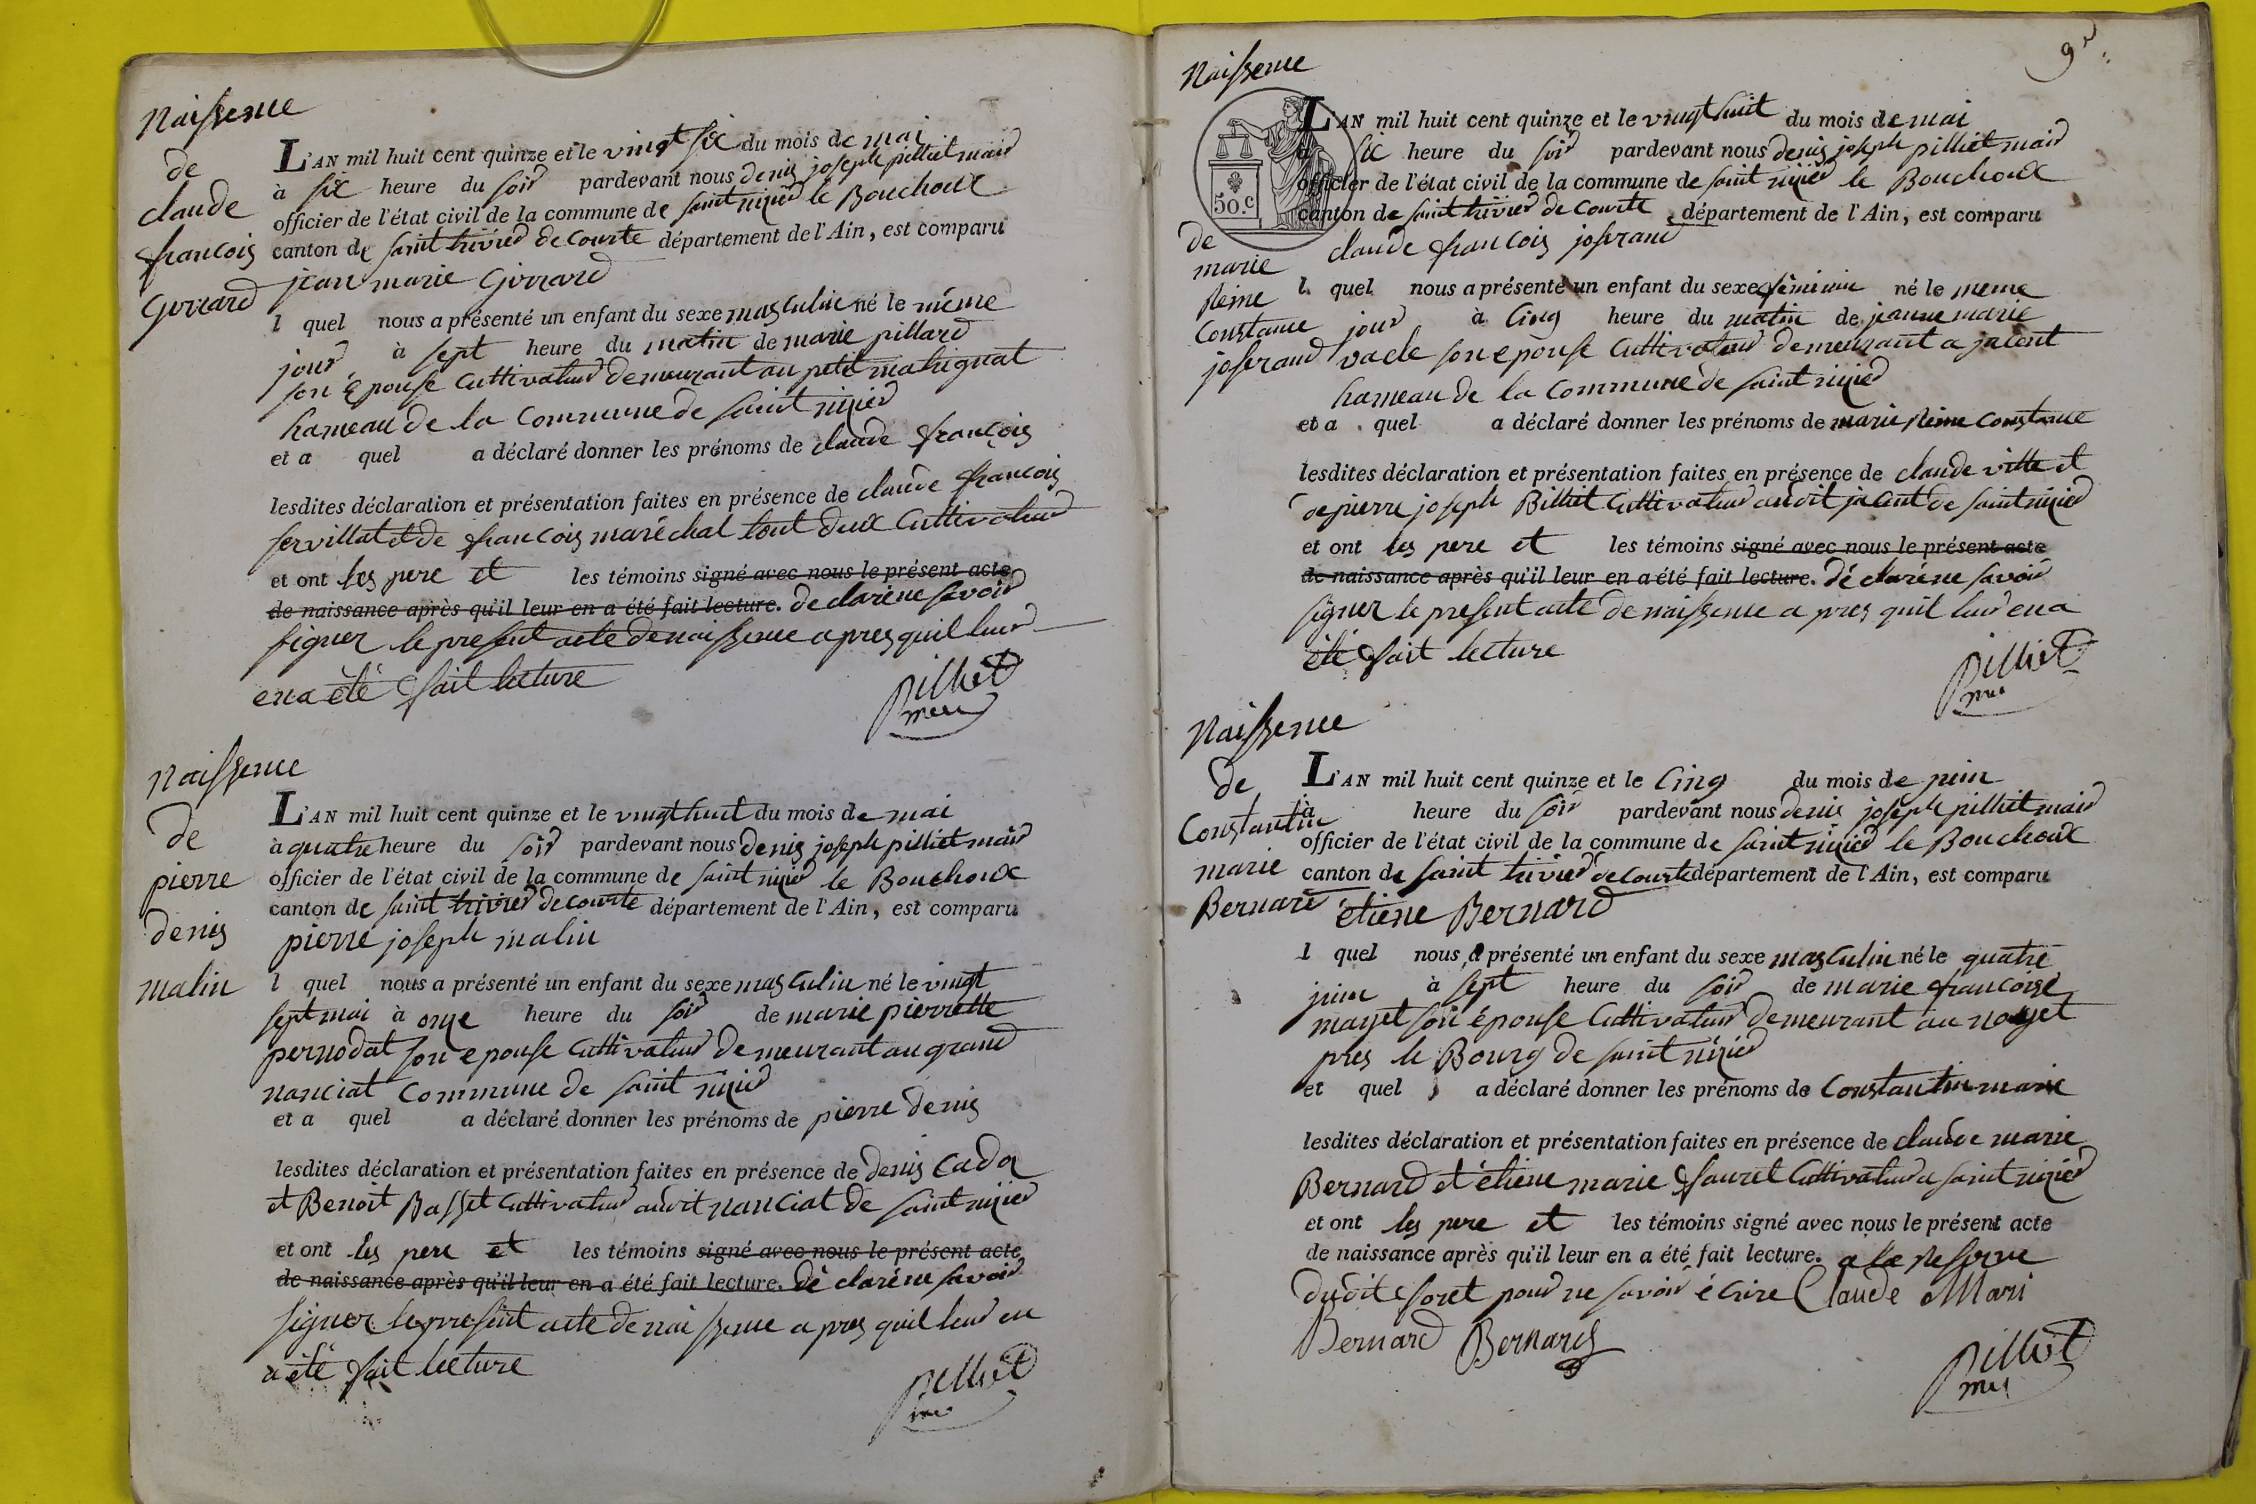 Naissence
de
claude
francois
Girrard
L'AN mil huit cent quinze et le vingt six du mois de mai
à six heure du soir pardevant nous denis joseph pilliet maire
officier de l'état civil de la commune de saint nizier le Bouchoux
canton de saint trivier de courte département de l'Ain, est comparu
jean marie Girrard
l quel nous a présenté un enfant du sexe masculin né le même
jour à sept heure du matin de marie pillard
son épouse cultivateur demeurant au petit matrignat
hameau de la commune de saint nizier
et a quel a déclaré donner les prénoms de claude françois
lesdites déclaration et présentation faites en présence de claude francois
servillat et de francois maréchal tout deux cultivateur
et ont les pere et les témoins signé avec nous le présent acte
de naissance après qu'il leur en a été fait lecture. declaréne savoir
signer le present acte de naissence apres quil leur
en a été fait lecture
pilliet
mere
Naissence
de
pierre
denis
malin
L'AN mil huit cent quinze et le vingt huit du mois de mai
à quatre heure du soir pardevant nous denis joseph pilliet maire
officier de l'état civil de la commune de saint nizier le Bouchoux
canton de saint trivier de courte département de l'Ain, est comparu
pierre joseph malin
l quel nous a présenté un enfant du sexe masculin né le vingt
sept mai à onze heure du soir de marie pierrette
pernodat son epouse cultivateur demeurant au grand
nanciat commune de saint nizier
et a quel a déclaré donner les prénoms de pierre denis
lesdites déclaration et présentation faites en présence de denis cadoz
et Benoit Basset cultivateur audit nanciat de saint nizier
et ont les pere et les témoins signé avec nous le présent acte
de naissance après qu'il leur en a été fait lecture. dé claréne savoir
signer le present acte de naissence apres quil leur en
a été fait lecture
pilliet
9
Naissence
50.c
de
marie
Reine
Constance
josserand
L'AN mil huit cent quinze et le vingt huit du mois de mai
a six heure du soir pardevant nous denis joseph pilliet maire
officier de l'état civil de la commune de saint nizier le Bouchoux
canton de saint trivier de courte, département de l'Ain, est comparu
claude françois josserand
l quel nous a présenté un enfant du sexe féminin né le meme
jour à cinq heure du matin de jeanne marie
vacle son epouse cultivateur demeurant a jacent
hameau de la commune de saint nizier
et a quel a déclaré donner les prénoms de marie Reine Constance
lesdites déclaration et présentation faites en présence de claude vitte et
de pierre joseph Billiet cultivateur audit jacent de saint nizier
et ont les pere et les témoins signé avec nous le présent acte
de naissance après qu'il leur en a été fait lecture. dé claréne savoir
signer le present acte de naissence apres quil leur en a
été fait lecture
pilliet
Naissence
de
Constantin
marie
Bernard
L'AN mil huit cent quinze et le cinq du mois de juin
à heure du soir pardevant nous denis joseph pilliet maire
officier de l'état civil de la commune de saint nizier le Bouchoux
canton de saint trivier de courte département de l'Ain, est comparu
étiene Bernard
l quel nous a présenté un enfant du sexe masculin né le quatre
juin à sept heure du soir de marie françoise
mayet son épouse cultivateur demeurant au noyet
pres le Bourg de saint nizier
et quel a déclaré donner les prénoms de Constantin marie
lesdites déclaration et présentation faites en présence de claude marie
Bernard et étiene marie fauret cultivateur a saint nizier
et ont les pere et les témoins signé avec nous le présent acte
de naissance après qu'il leur en a été fait lecture. a la Reserve
dudit foret pour ne savoir écrire Claude Mari
Bernard Bernard
pilliet